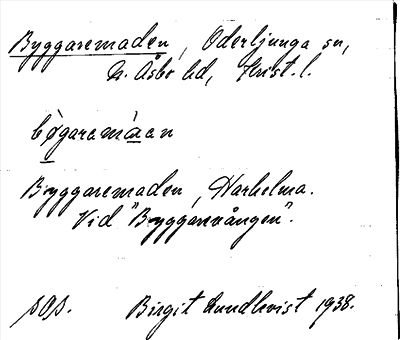 Byggaremaden, Oderljunga sn,
N. Åsbo hd, Krist. l.
bøgaremaen
Byggaremaden, Harhelma.
Vid "Byggarevången".
sOs. Birgit Lundkvist 1938.